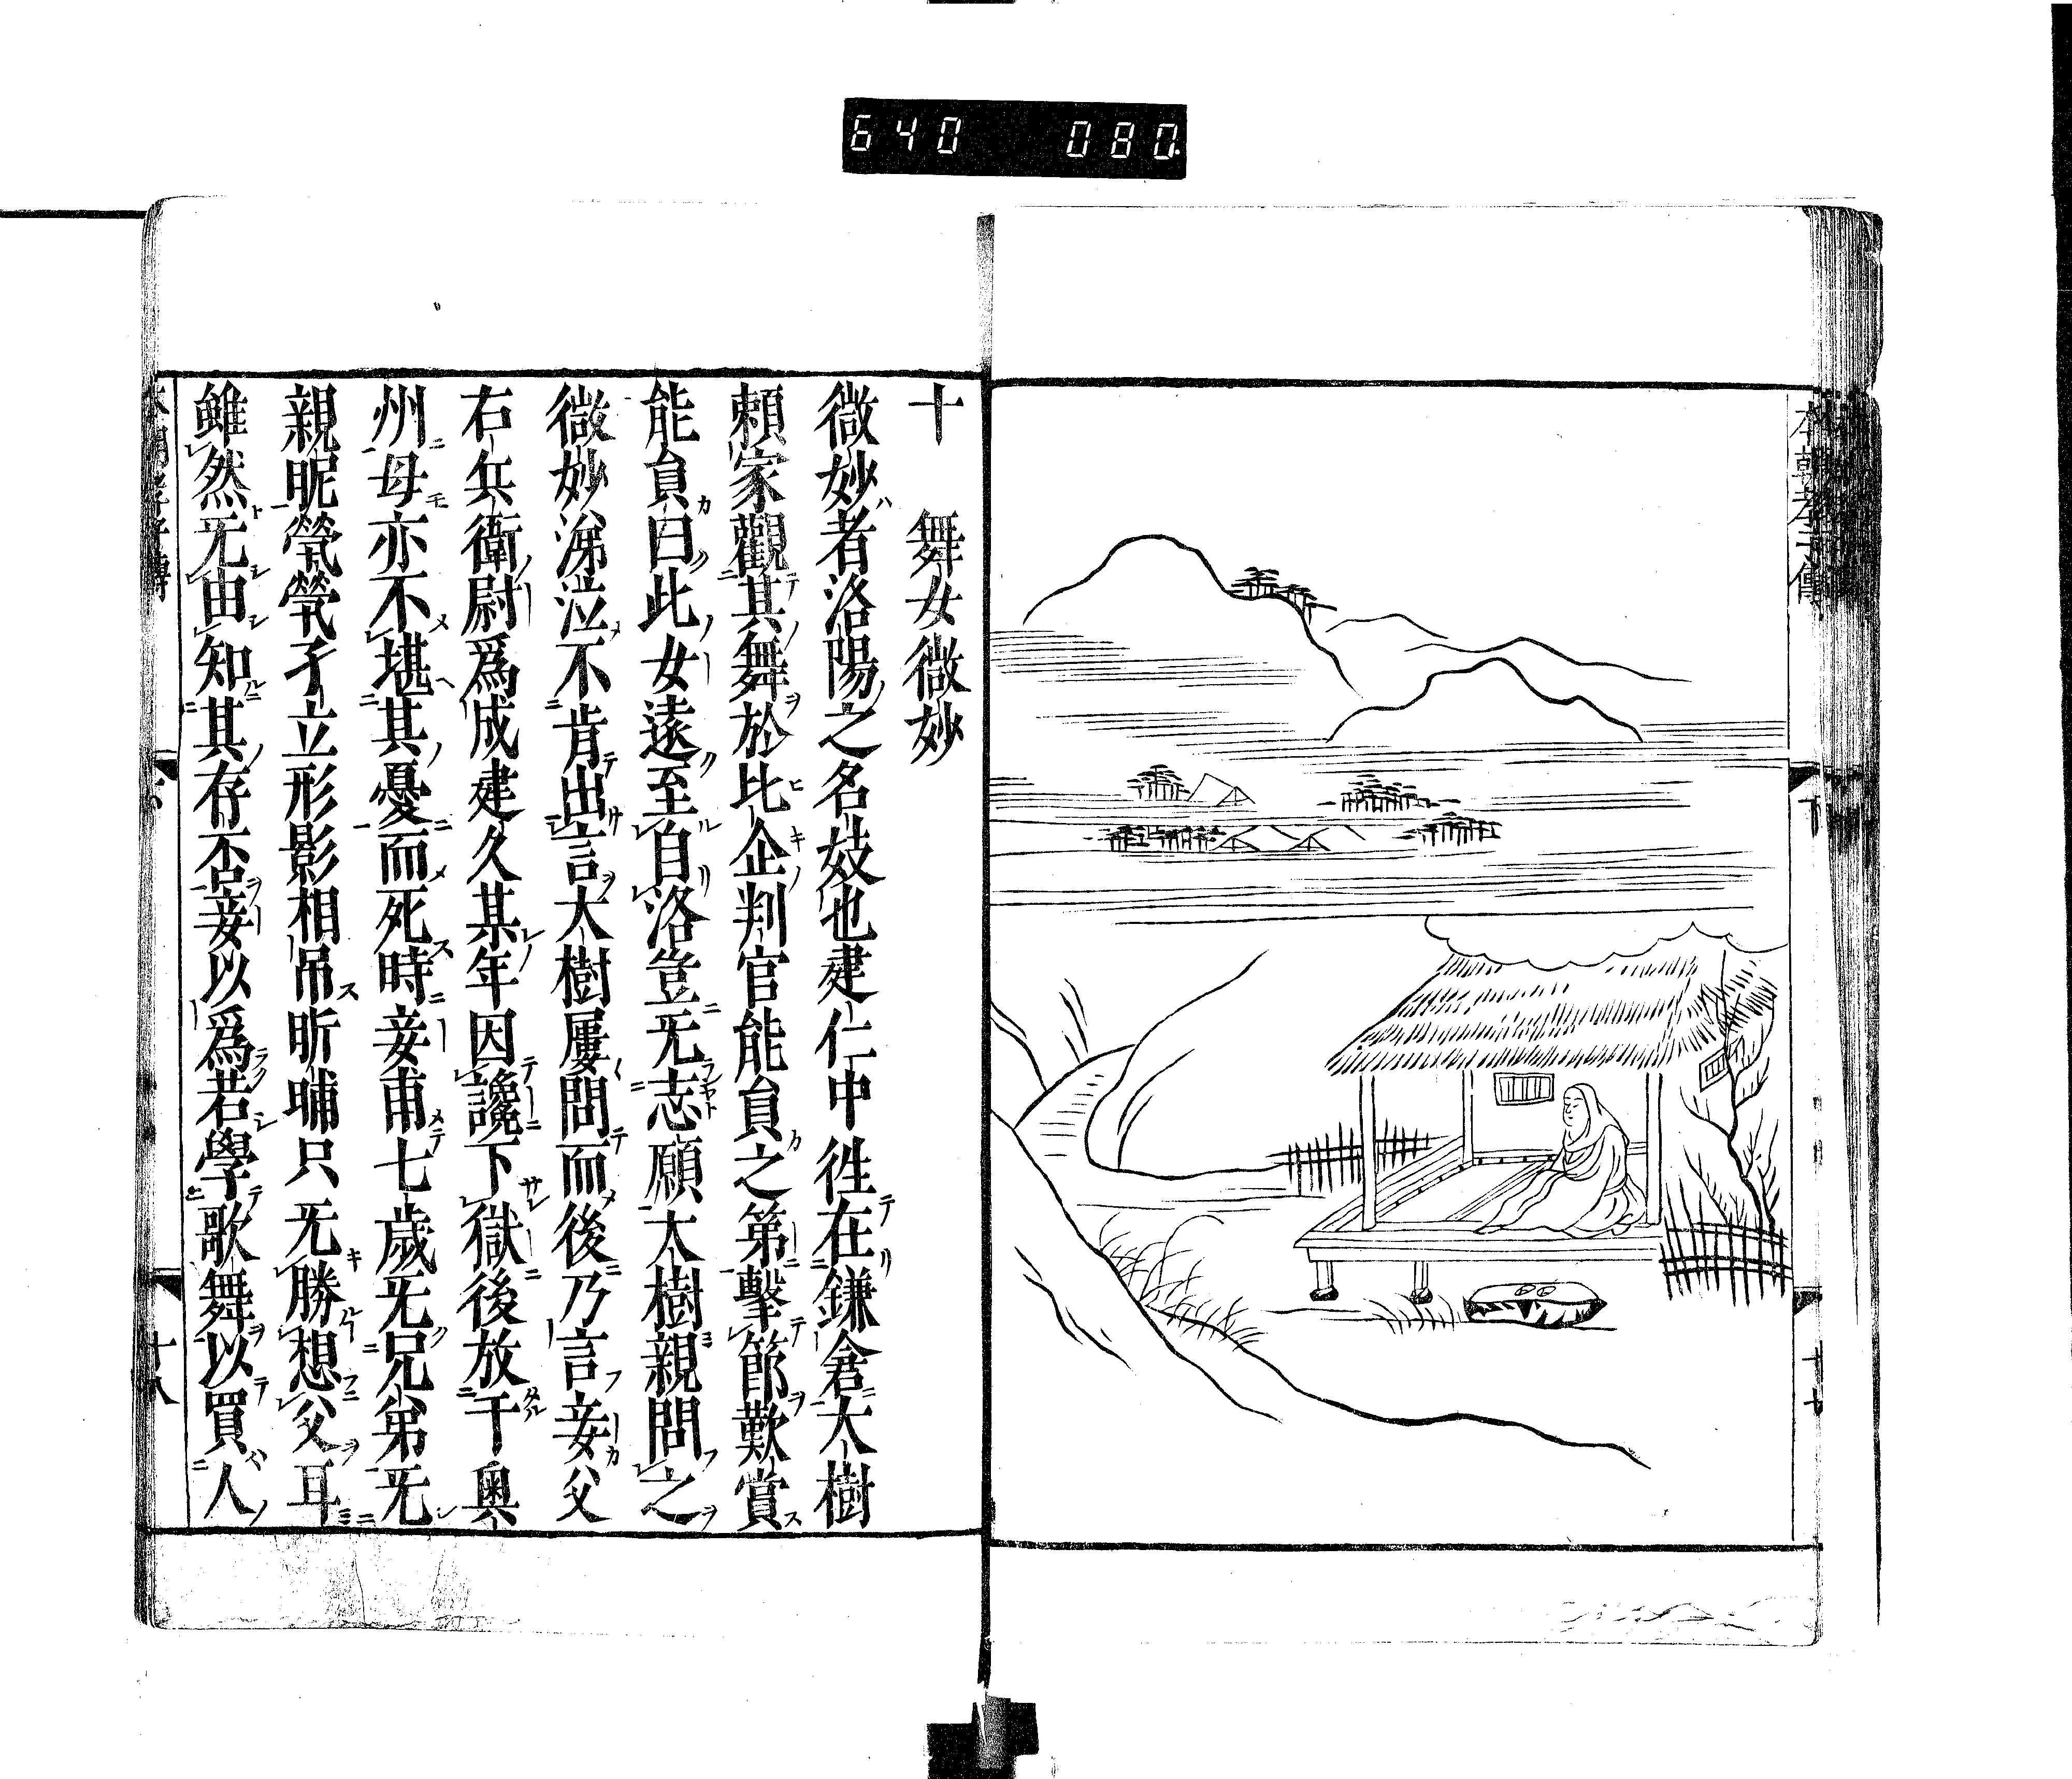 640 080
本朝孝子傳
下
十七
十 舞女微妙
微妙者洛陽之名妓也建仁中徃在鎌倉大樹
頼家觀其舞於比企判官能員之第擊節歎賞
能員曰此女遠至自洛豈无志願大樹親問之
微妙涕泣不肯出言大樹屢問而後乃言妾父
右兵衛尉爲成建久某年因讒下獄後放于奧
州母亦不堪其憂而死時妾甫七歲无兄弟无
親昵煢煢孑立形影相吊昕晡只无勝想父耳
雖然无由知其存否妾以爲若學歌舞以買人
本朝孝子傳
十八